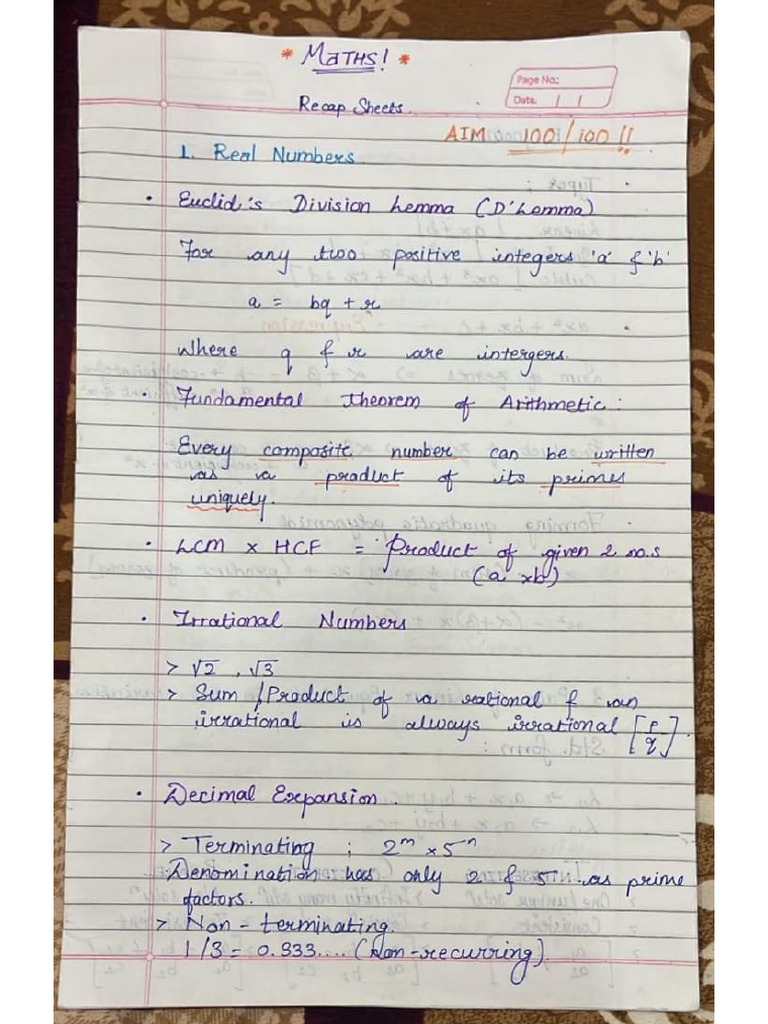 * MaTHS! *
Page No:
Date. / /
Recap Sheets.
AIM 100/100 !!
1. Real Numbers
• Euclid's Division Lemma (D'Lemma)
For any two positive integers 'a' & 'b'
a = bq + r
where q & r are intergers.
• Fundamental Theorem of Arithmetic:
Every composite number can be written
as a product of its primes
uniquely.
• LCM × HCF = Product of given 2 no.s
(a × b)
• Irrational Numbers
> √2 , √3
> Sum /Product of a rational & an
irrational is always irrational [p/q].
• Decimal Expansion.
> Terminating ; 2^m × 5^n
Denomination has only 2 & 5 as prime
factors.
> Non - terminating.
1/3 = 0.333.... (Non-recurring).